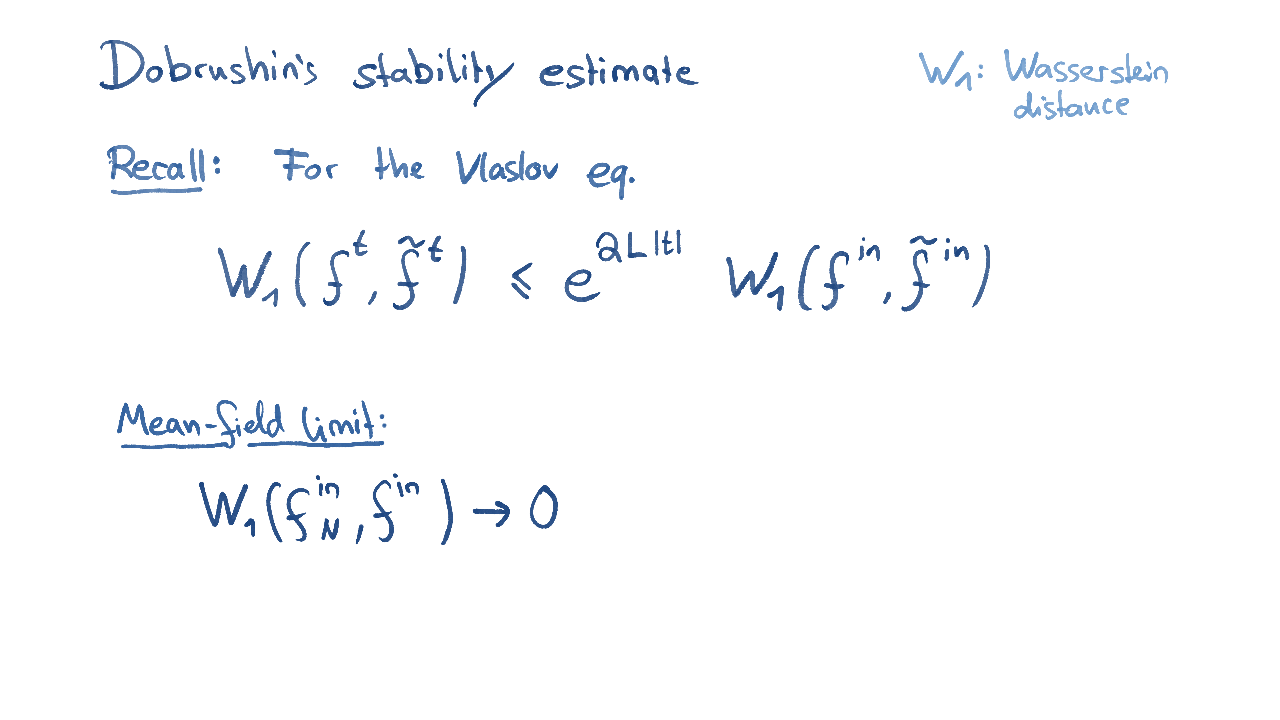 Dobrushin's stability estimate
W₁: Wasserstein
distance
Recall: For the Vlaslov eq.
W₁(fᵗ, f̃ᵗ) ⩽ e^{2L|t|} W₁(f^{in}, f̃^{in})
Mean-field limit:
W₁(f_N^{in}, f^{in}) → 0